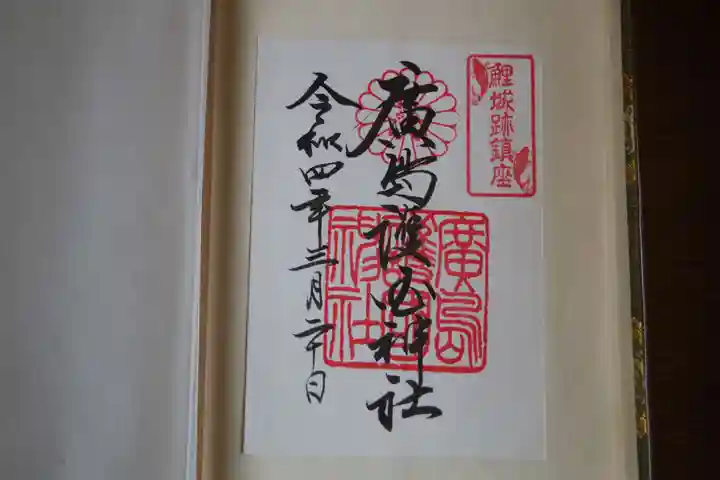 鯉城跡鎮座
廣島護国神社
廣島護國神社
令和四年三月二十日